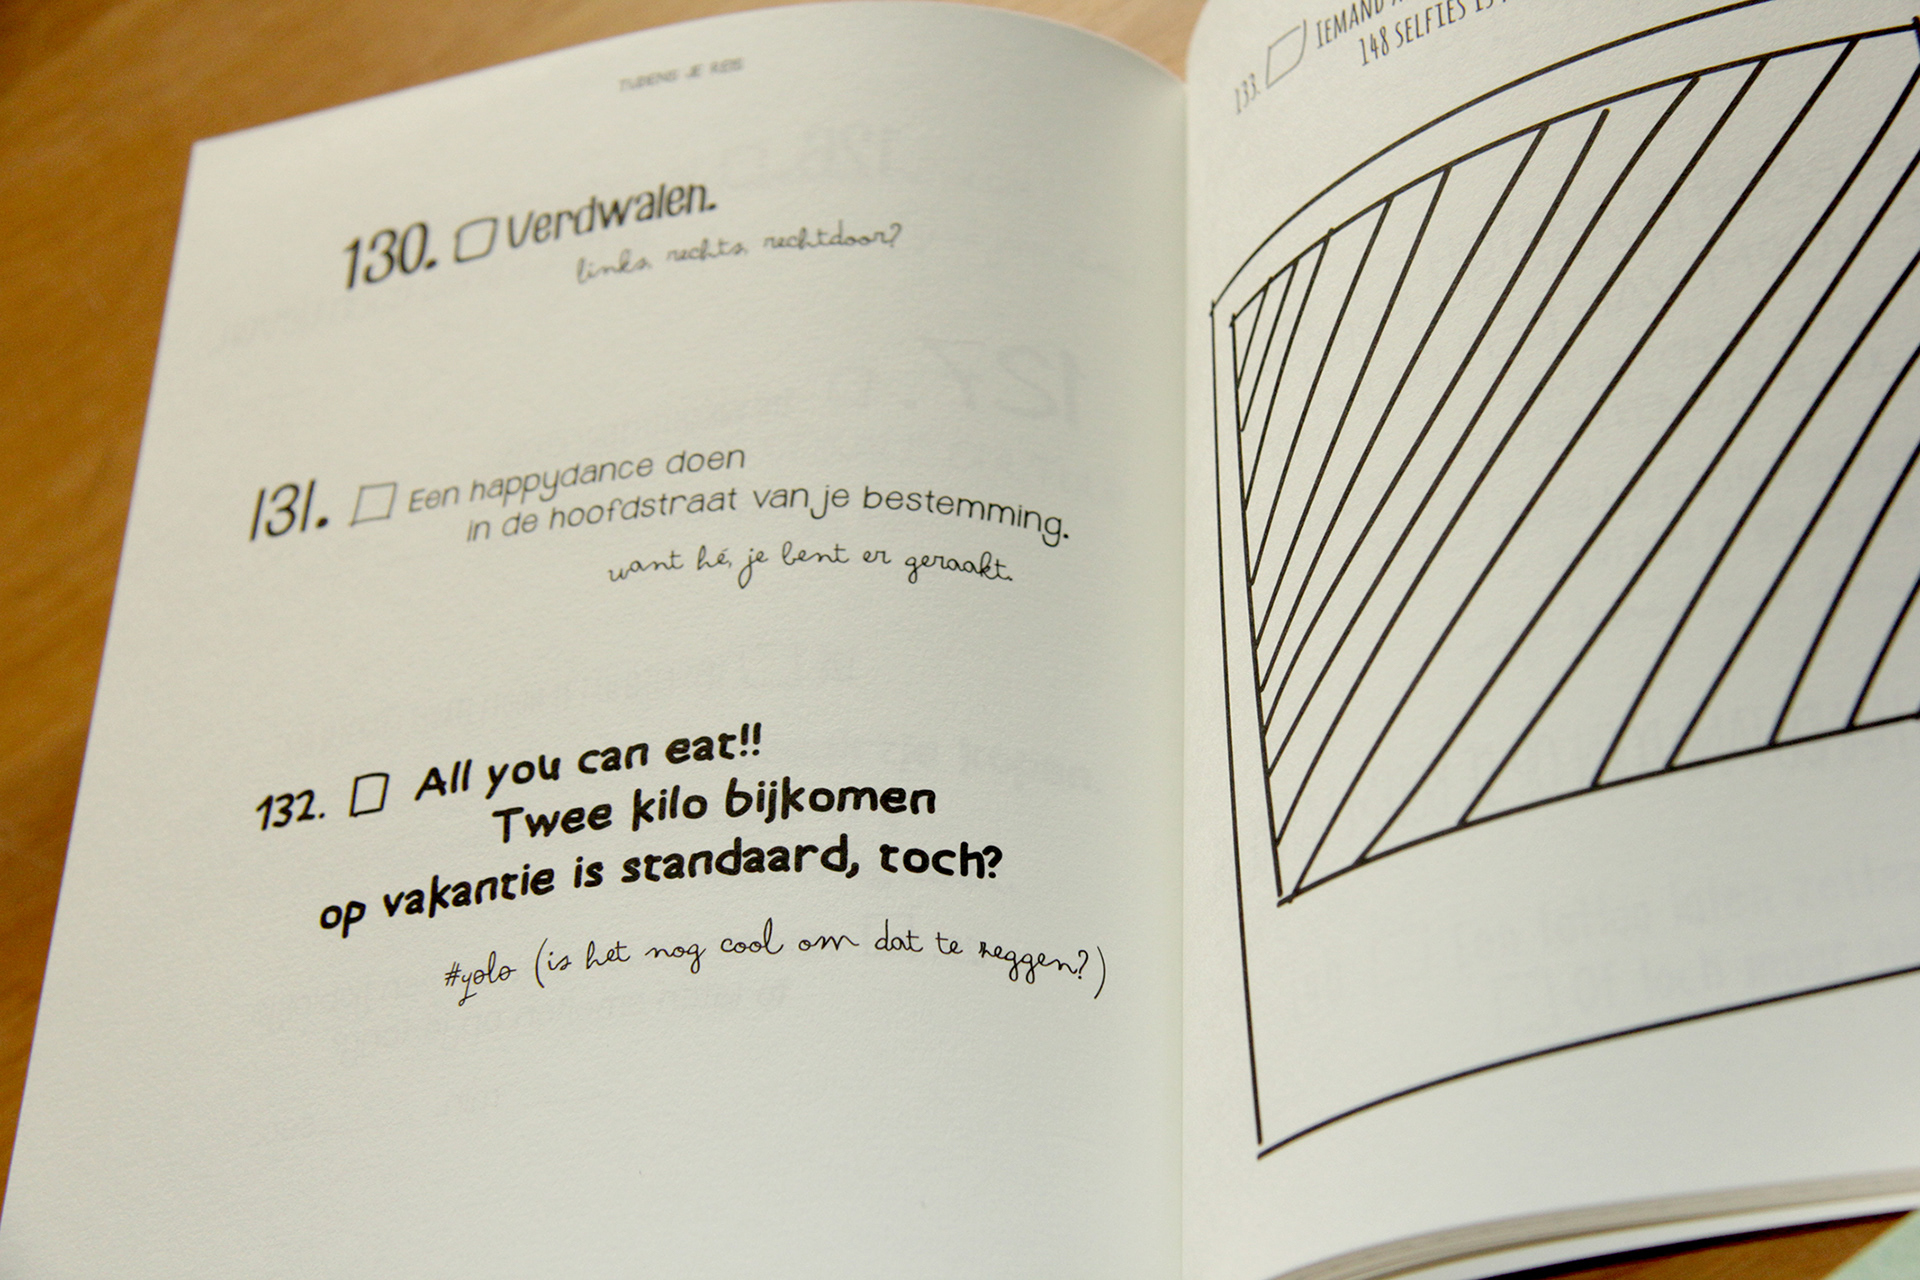 TIJDENS JE REIS
130. Verdwalen.
links, rechts, rechtdoor?
131. Een happydance doen
in de hoofdstraat van je bestemming.
want hé, je bent er geraakt.
132. All you can eat!!
Twee kilo bijkomen
op vakantie is standaard, toch?
#yolo (is het nog cool om dat te zeggen?)
133. IEMAND
148 SELFIES